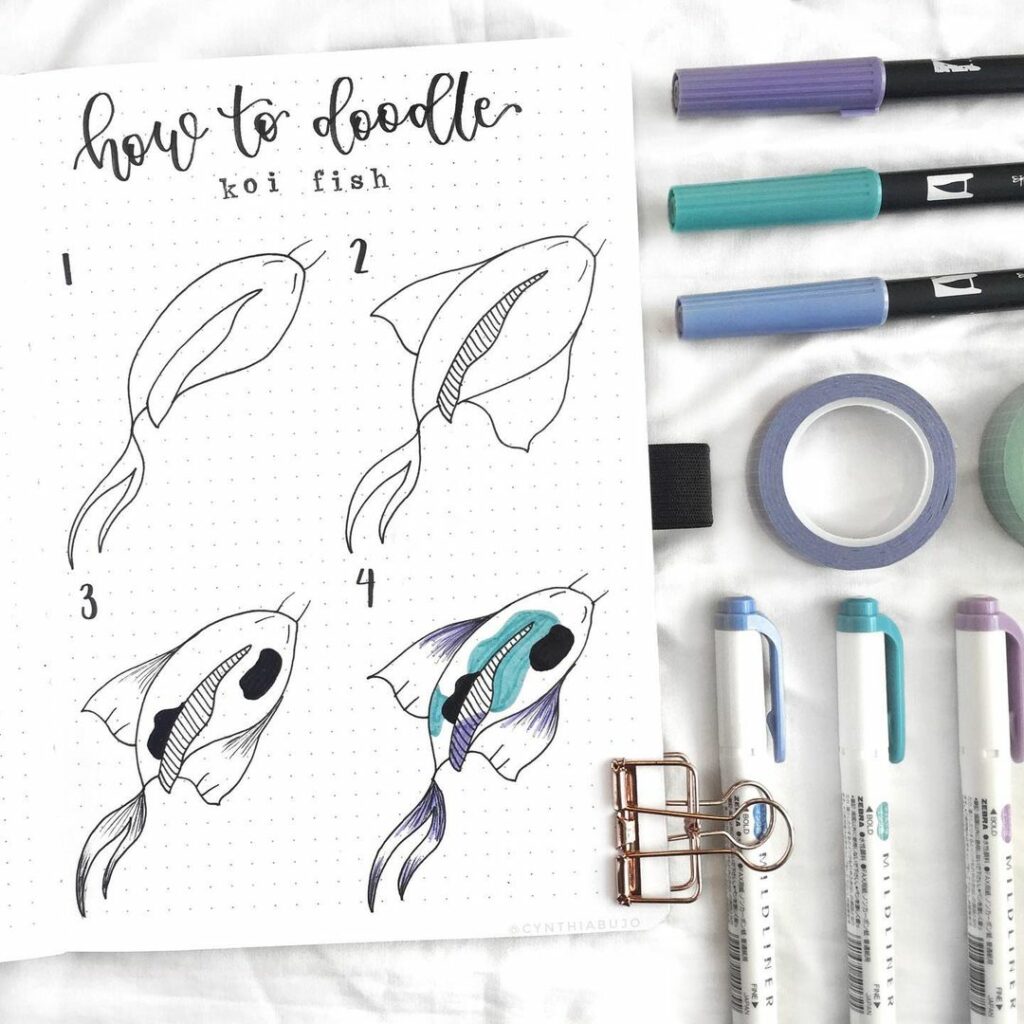 how to doodle
koi fish
1
2
3
4
@CYNTHIABUJO
BOLD
ZEBRA
MILDLINER
FINE
JAPAN
BOLD
ZEBRA
MILDLINER
FINE
JAPAN
BOLD
ZEBRA
MILDLINER
FINE
JAPAN